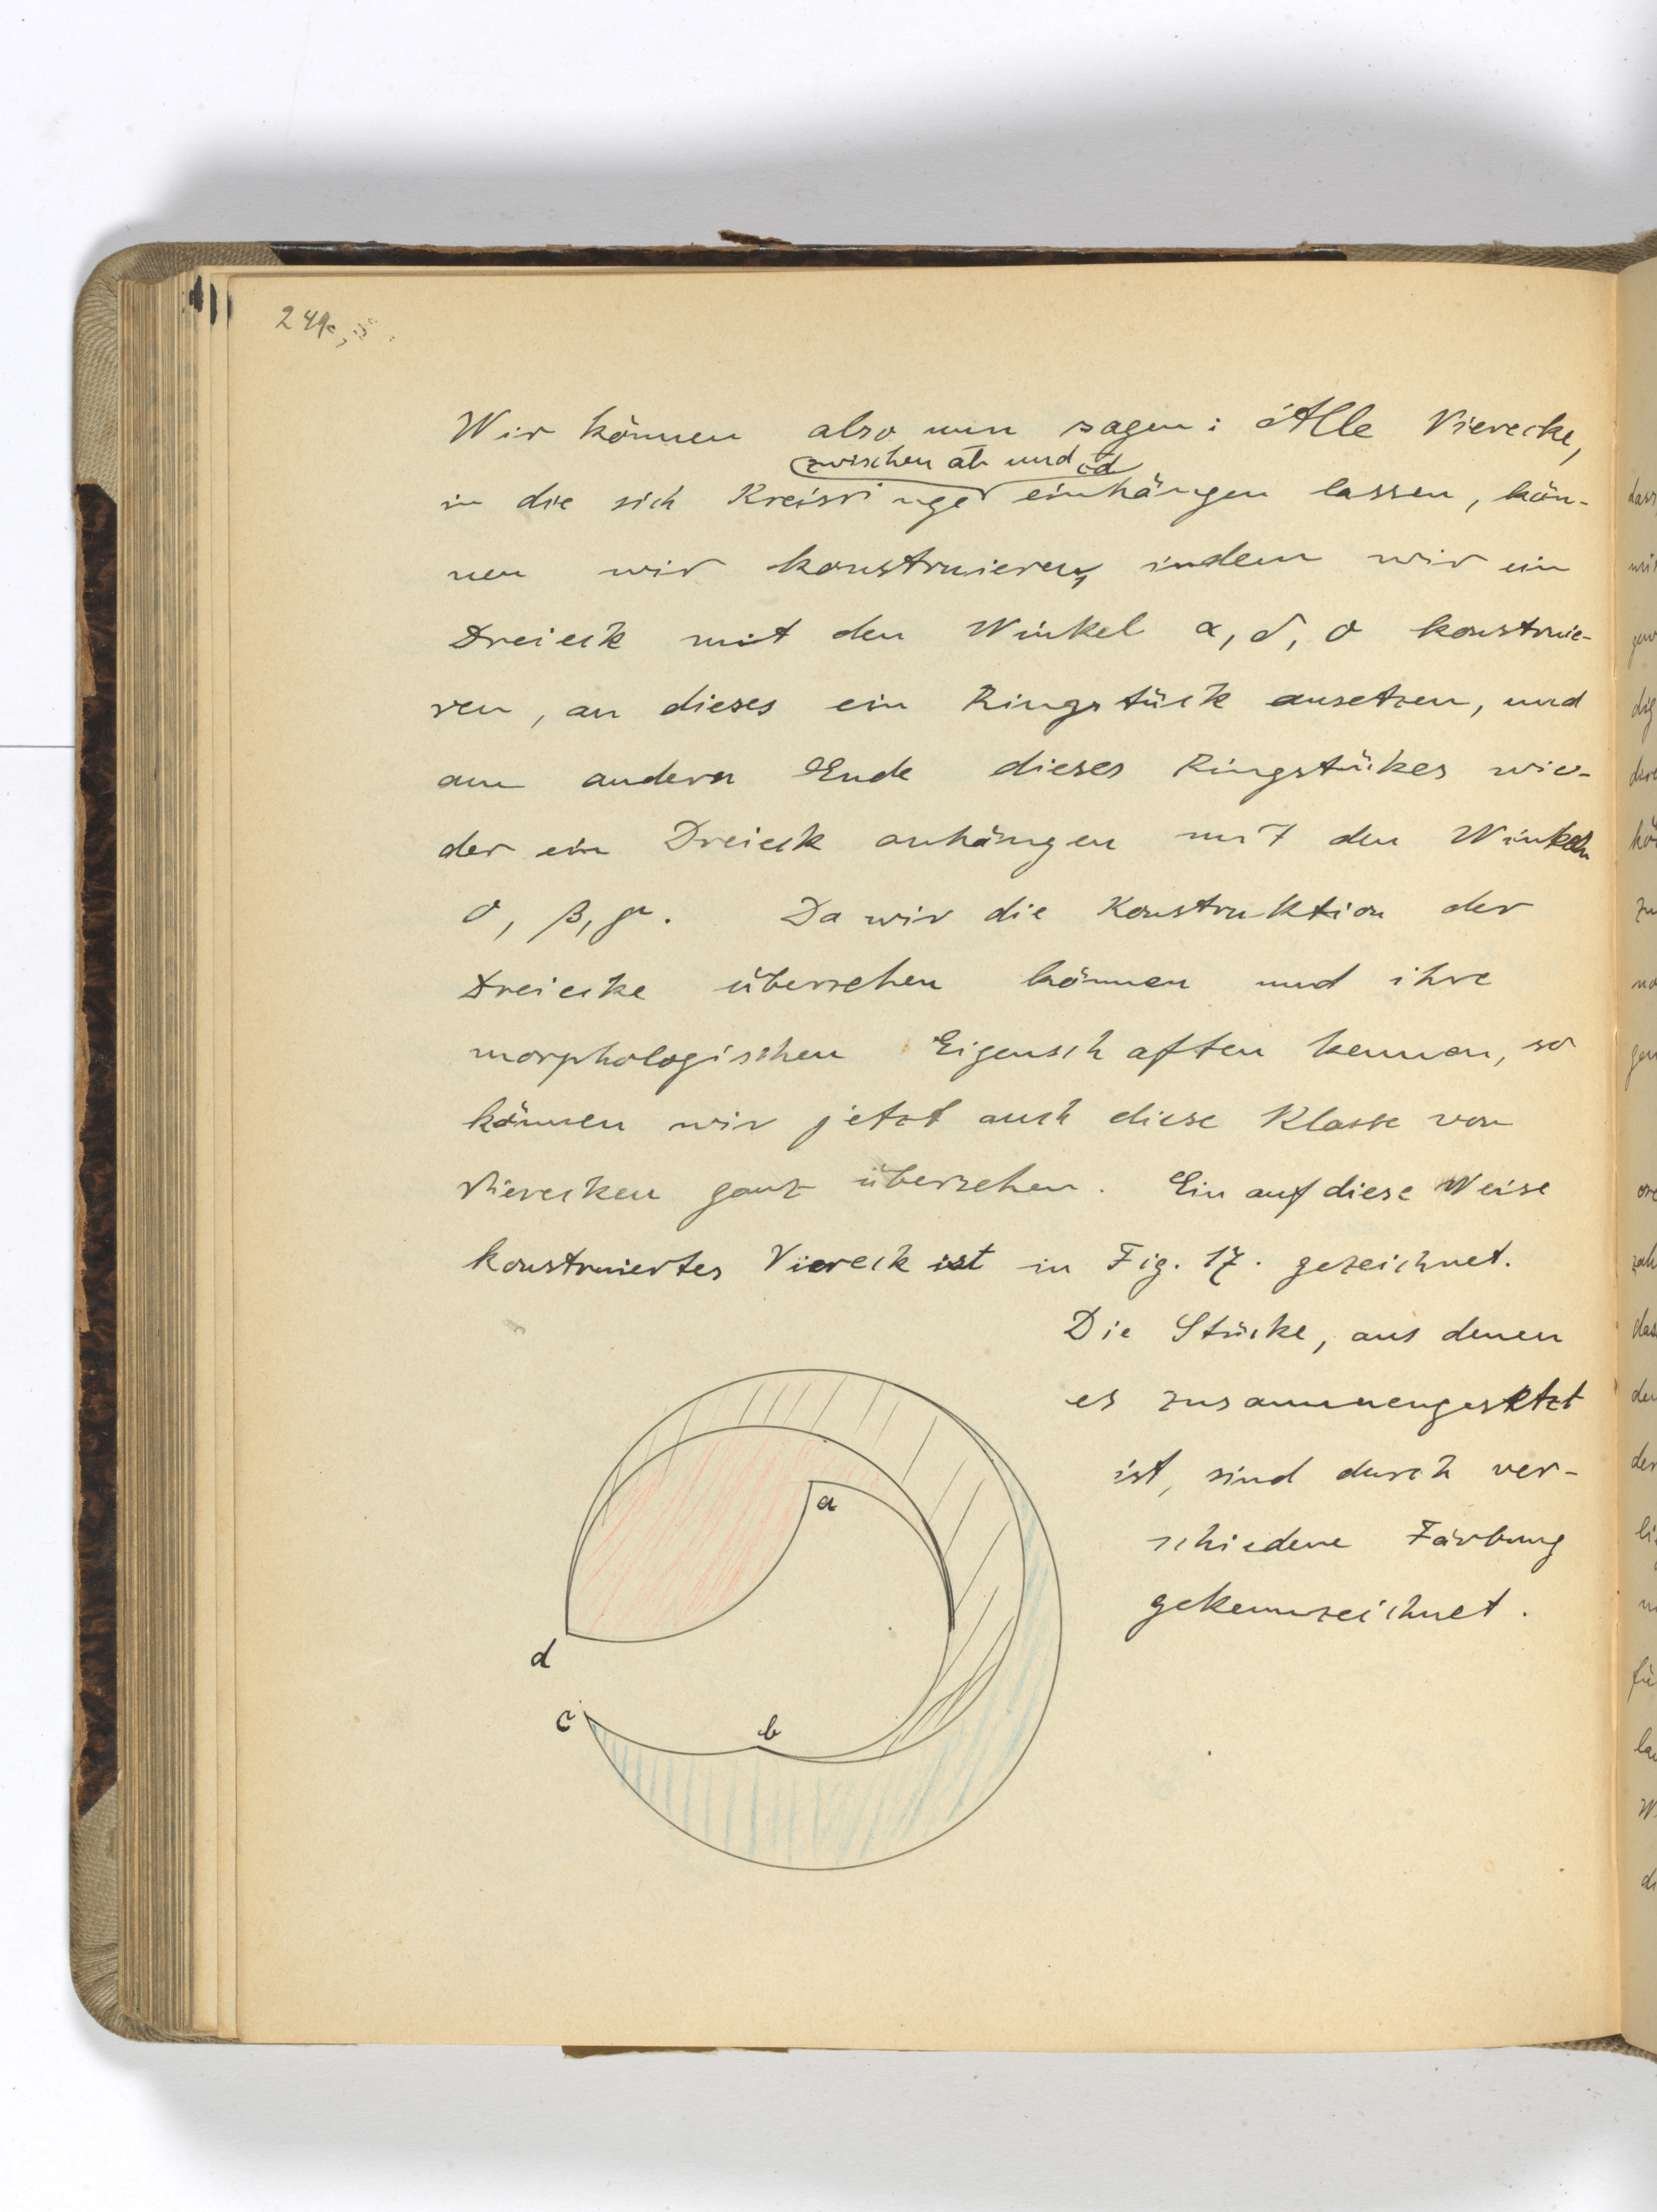 Wir können also nun sagen: Alle Vierecke,
zwischen ab und cd
in die sich Kreisringe einhängen lassen, kön-
nen wir konstruieren, indem wir ein
Dreieck mit den Winkel α, δ, 0 konstruie-
ren, an dieses ein Ringstück ansetzen, und
am andern Ende dieses Ringstükes wie-
der ein Dreieck anhängen mit den Winkeln
0, β, γ. Da wir die Konstruktion der
Dreiecke übersehen können und ihre
morphologischen Eigenschaften kennen, so
können wir jetzt auch diese Klasse von
Vierecken ganz übersehen. Ein auf diese Weise
konstruiertes Viereck ist in Fig. 17. gezeichnet.
Die Stücke, aus denen
es zusammengesetzt
ist, sind durch ver-
schiedene Färbung
gekennzeichnet.
a
d
c
b